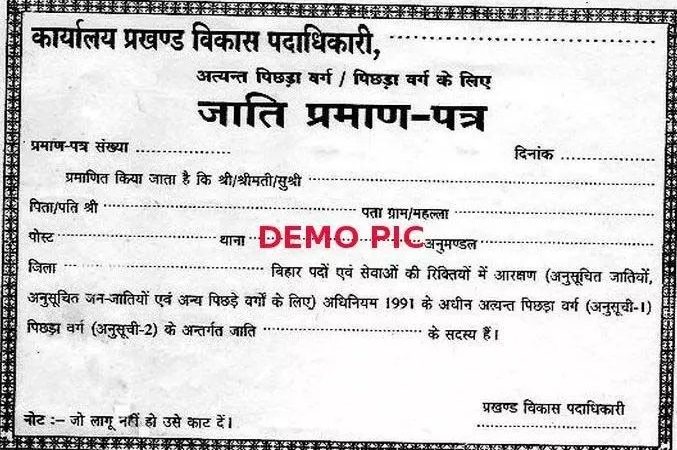 कार्यालय प्रखण्ड विकास पदाधिकारी, ........................
अत्यन्त पिछड़ा वर्ग / पिछड़ा वर्ग के लिए
जाति प्रमाण-पत्र
प्रमाण-पत्र संख्या ............... दिनांक ...............
प्रमाणित किया जाता है कि श्री/श्रीमती/सुश्री ........................
पिता/पति श्री ........................ पता ग्राम/महल्ला ........................
पोस्ट ........................ थाना ........................ अनुमण्डल ........................
DEMO PIC
जिला ........................ बिहार पदों एवं सेवाओं की रिक्तियों में आरक्षण (अनुसूचित जातियों,
अनुसूचित जन-जातियों एवं अन्य पिछड़े वर्गो के लिए) अधिनियम 1991 के अधीन अत्यन्त पिछड़ा वर्ग (अनुसूची-1)
पिछड़ा वर्ग (अनुसूची-2) के अन्तर्गत जाति ........................ के सदस्य हैं।
प्रखण्ड विकास पदाधिकारी
........................
नोट :– जो लागू नहीं हो उसे काट दें।